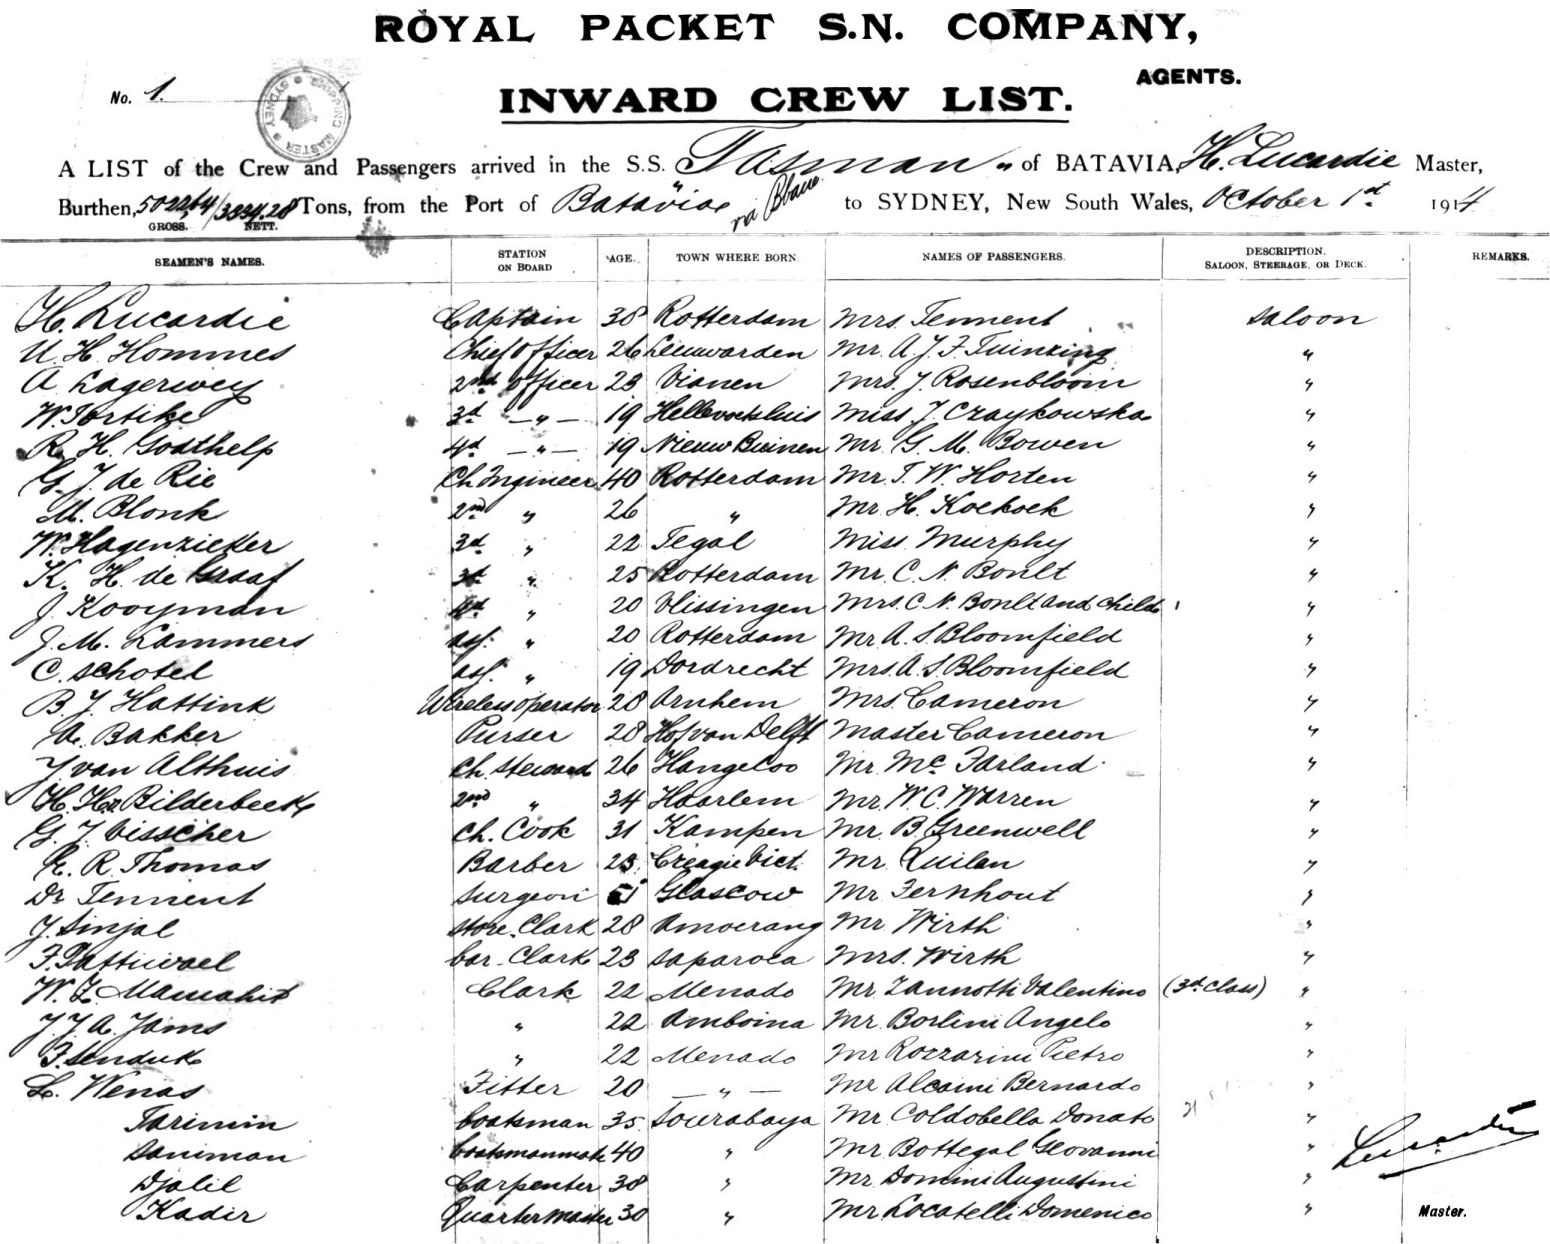 ROYAL PACKET S.N. COMPANY,
AGENTS.
No. 1.
INWARD CREW LIST.
A LIST of the Crew and Passengers arrived in the S.S. Tasman „ of BATAVIA, H. Lucardie Master,
Burthen, 5022.64/3234.28 Tons, from the Port of Batavia via to SYDNEY, New South Wales, October 1st 1914
GROSS. NETT.
SEAMEN'S NAMES. STATION ON BOARD AGE. TOWN WHERE BORN. NAMES OF PASSENGERS. DESCRIPTION. SALOON, STEERAGE, OR DECK. REMARKS.
H. Lucardie Captain 38 Rotterdam Mrs. Tennent Saloon
U. H. Hommes Chief Officer 26 Leeuwarden Mr A. J. F. Tuinzing "
A Lagerwey 2nd Officer 23 Vianen Mrs. J. Rosenbloom "
W. Tortike 3d — " — 19 Hellevoetsluis Miss J. Czaykowska "
R. H. Gosthelp 4d — " — 19 Nieuw Buinen Mr G. M. Bowen "
G. J. de Rie Ch Ingineer 40 Rotterdam Mr T. W. Horten "
M. Blonk 2nd " 26 " Mr H. Koekoek "
W. Hagenzieker 3d " 22 Tegal Miss Murphy "
K. H. de Graaf 3d " 25 Rotterdam Mr. C. N. Boult "
J. Kooyman 4d " 20 Vlissingen Mrs. C. N. Boult and child "
J. M. Lammers ass. " 20 Rotterdam Mr A. S. Bloomfield "
C. Schotel ass. " 19 Dordrecht Mrs. A. S. Bloomfield "
B. J. Hattink Wireless operator 28 Arnhem Mrs. Cameron "
A. Bakker Purser 28 Hof van Delft Master Cameron "
J van Althuis Ch. steward 26 Hangeloo Mr. Mc Farland "
H. Hn Bilderbeek 2nd " 34 Haarlem Mr. W. C. Warren "
G. J. Visscher Ch. Cook 31 Kampen Mr. B. Greenwell "
E. R. Thomas Barber 23 Creagie Vict. Mr Quilan "
Dr Tennent Surgeon 51 Glascow Mr Fernhout "
J. Sinjal store. Clark 28 Amoerang Mr Wirth "
F. Pattiwael bar. Clark 23 Saparoea Mrs. Wirth "
W. L. Mamahit Clark 22 Menado Mr Zannotti Valentino (3d class) "
J. J. A. Jams " 22 Amboina Mr. Borlini Angelo "
F. Senduk " 22 Menado Mr Rozzarini Pietro "
L. Wenas Fitter 20 — " — Mr Alcaini Bernardo "
Tarimin boatsman 35 Sourabaya Mr Coldobella Donato "
Saniman boatsmanmate 40 " Mr Bottegal Geovanni "
Djalil Carpenter 38 " Mr. Domini Augustini "
Kadir Quartermaster 30 " Mr Locatelli Domenico "
Lucardie
Master.